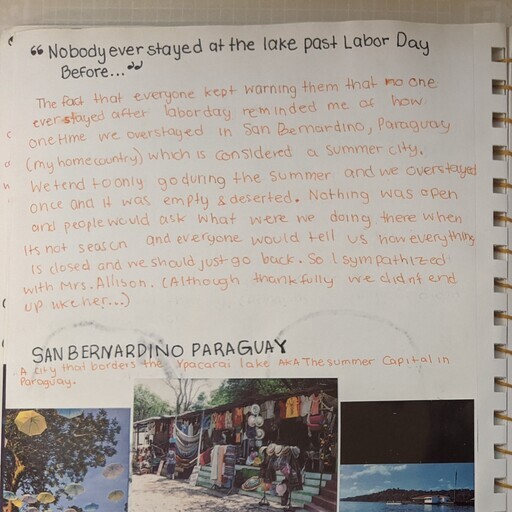 “Nobody ever stayed at the lake past Labor Day
Before...”
The fact that everyone kept warning them that no one
ever stayed after laborday reminded me of how
onetime we overstayed in San Bernardino, Paraguay
(my home country) which is considered a summer city.
We tend to only go during the summer and we overstayed
once and it was empty & deserted. Nothing was open
and people would ask what were we doing there when
its not season and everyone would tell us how everything
is closed and we should just go back. So I sympathized
with Mrs. Allison. (Although thankfully we didnt end
up like her...)
SAN BERNARDINO PARAGUAY
A city that borders the Ypacarai lake AKA The summer Capital in
Paraguay.